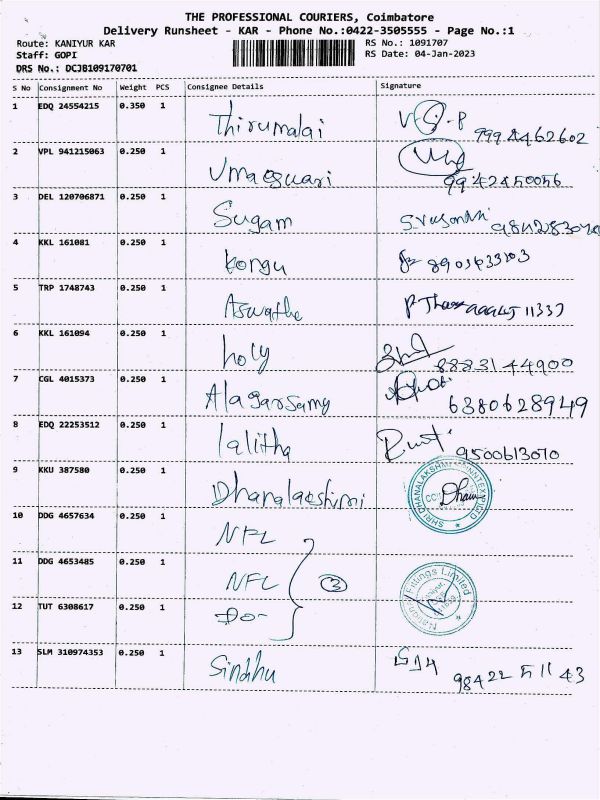 THE PROFESSIONAL COURIERS, Coimbatore
Delivery Runsheet - KAR - Phone No.:0422-3505555 - Page No.:1
Route: KANIYUR KAR RS No.: 1091707
Staff: GOPI RS Date: 04-Jan-2023
DRS No.: DCJB109170701
S No Consignment No Weight PCS Consignee Details Signature
1 EDQ 24554215 0.350 1 Thirumalai
2 VPL 941215063 0.250 1 Umaeswari 9942450056
3 DEL 120706871 0.250 1 Sugam
4 KKL 161081 0.250 1 Kongu
5 TRP 1748743 0.250 1 Aswathe
6 KKL 161094 0.250 1 holy 8883144900
7 CGL 4015373 0.250 1 Alagarsamy 6380628949
8 EDQ 22253512 0.250 1 lalitha 9500613070
9 KKU 387580 0.250 1 Dhanalaeshimi
10 DDG 4657634 0.250 1 NFL
11 DDG 4653485 0.250 1 NFL 3
12 TUT 6308617 0.250 1 -Do-
13 SLM 310974353 0.250 1 Sindhu 98422 51143